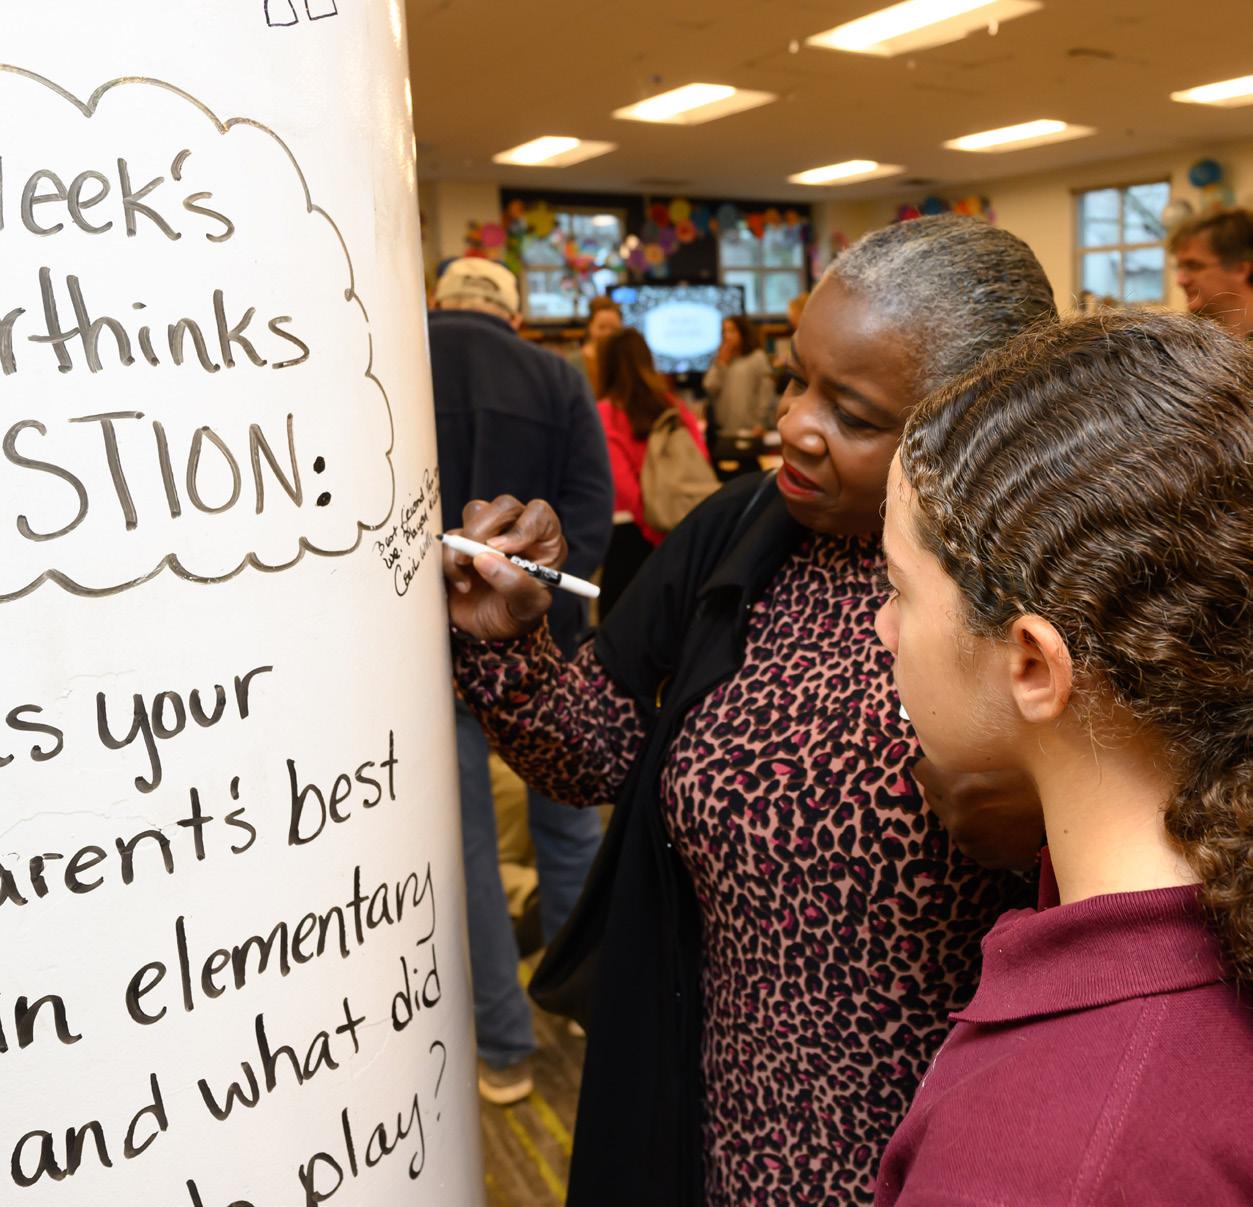 leek's
rthinks
STION:
as your
arent's best
in elementary
and what did
to play?
Best
we played
EXPO